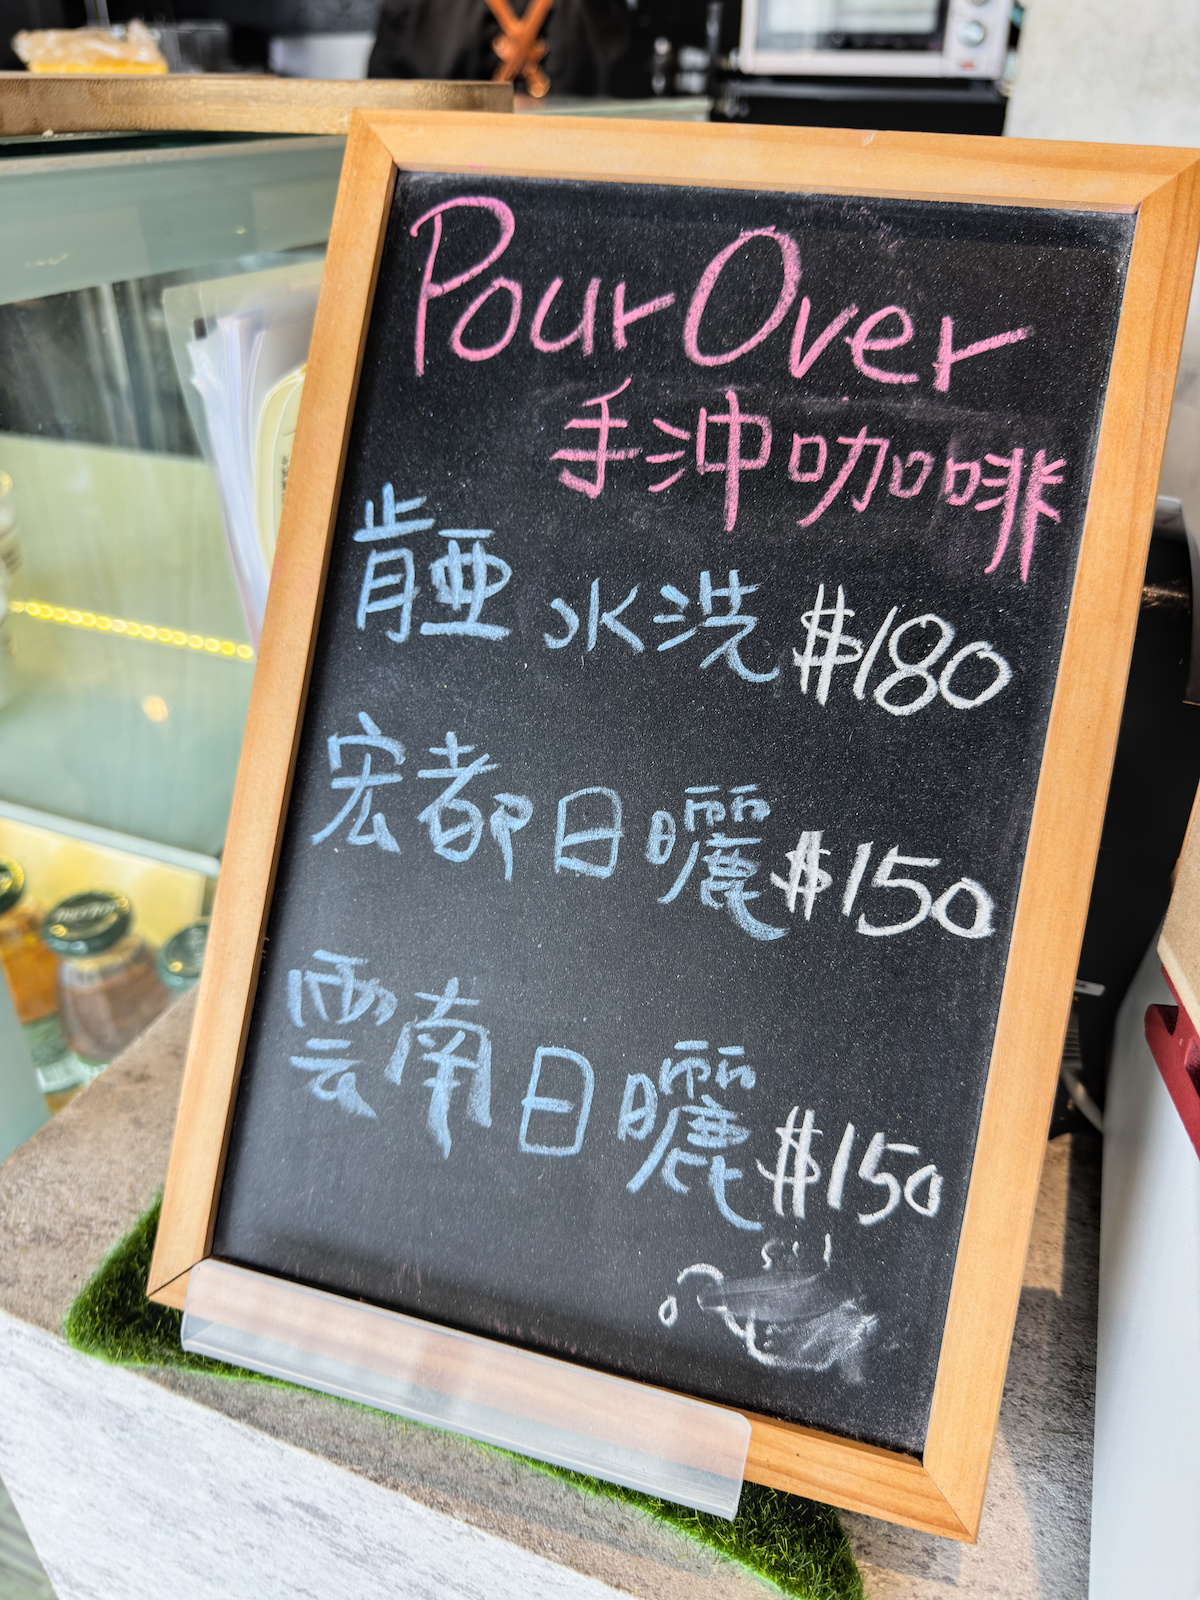 Pour Over
手沖咖啡
肯亞 水洗 $180
宏都日曬 $150
雲南日曬 $150